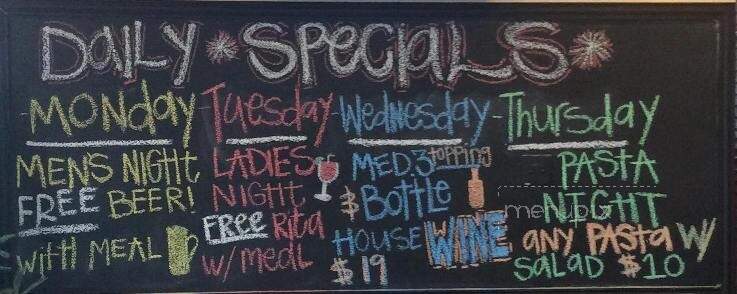 DAILY * SPECIALS *
MONday
MENS NIGHt
FREE BEER!
witH MEAL
Tuesday
LADIES
NIGHT
FREE Rita
w/ meal
Wednesday
MED. 3 topping
$ Bottle
HOUSE WINE
$19
Thursday
PASTA
NIGHT
any PASta w/
SALAD $10
menupix